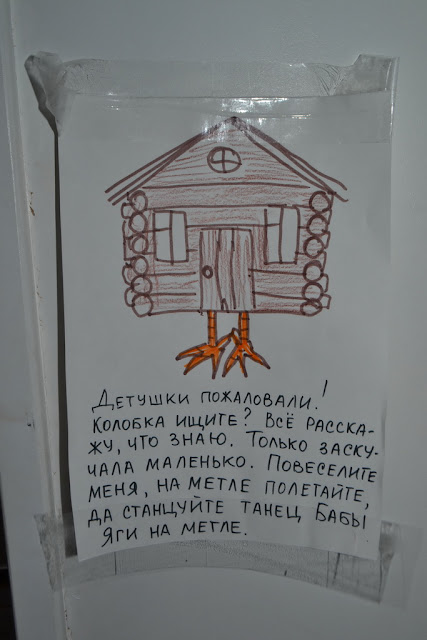 Детушки пожаловали!
Колобка ищите? Всё расска-
жу, что знаю. Только заску-
чала маленько. Повеселите
меня, на метле полетайте,
да станцуйте танец Бабы
Яги на метле.